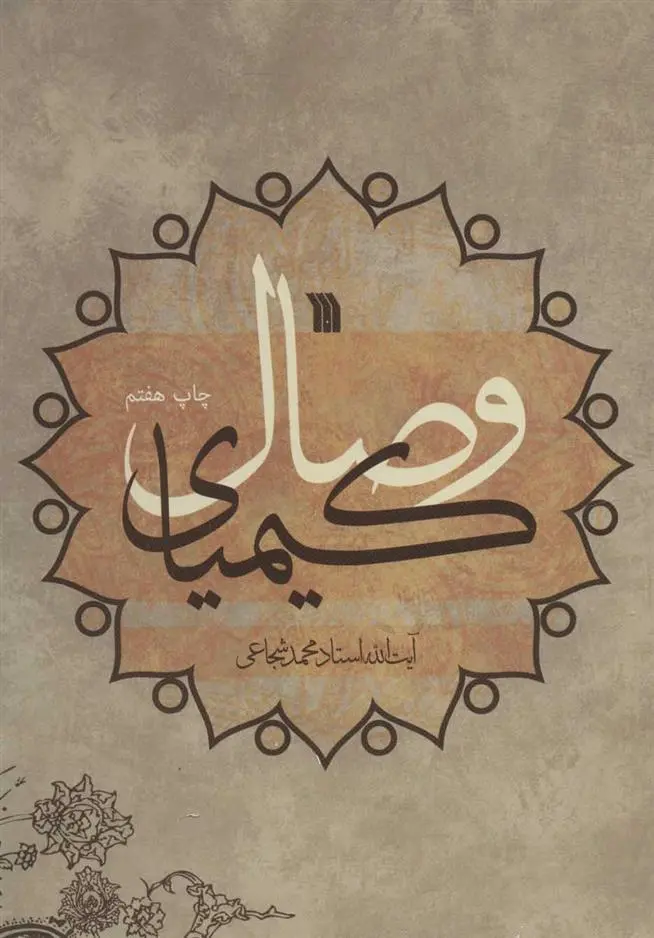 کیمیای
وصال
چاپ هفتم
آیت الله استاد محمد شجاعی